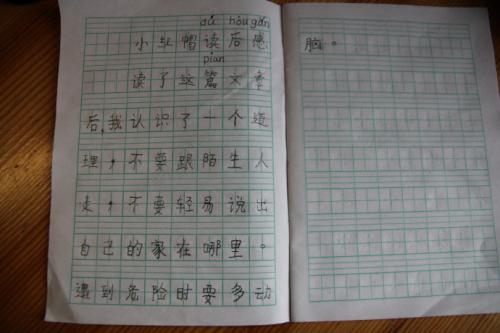 dú hòu gǎn
小红帽读后感
piān
读了这篇文章
后,我认识了一个道
理,不要跟陌生人
走,不要轻易说出
自己的家在哪里。
遇到危险时要多动
脑。